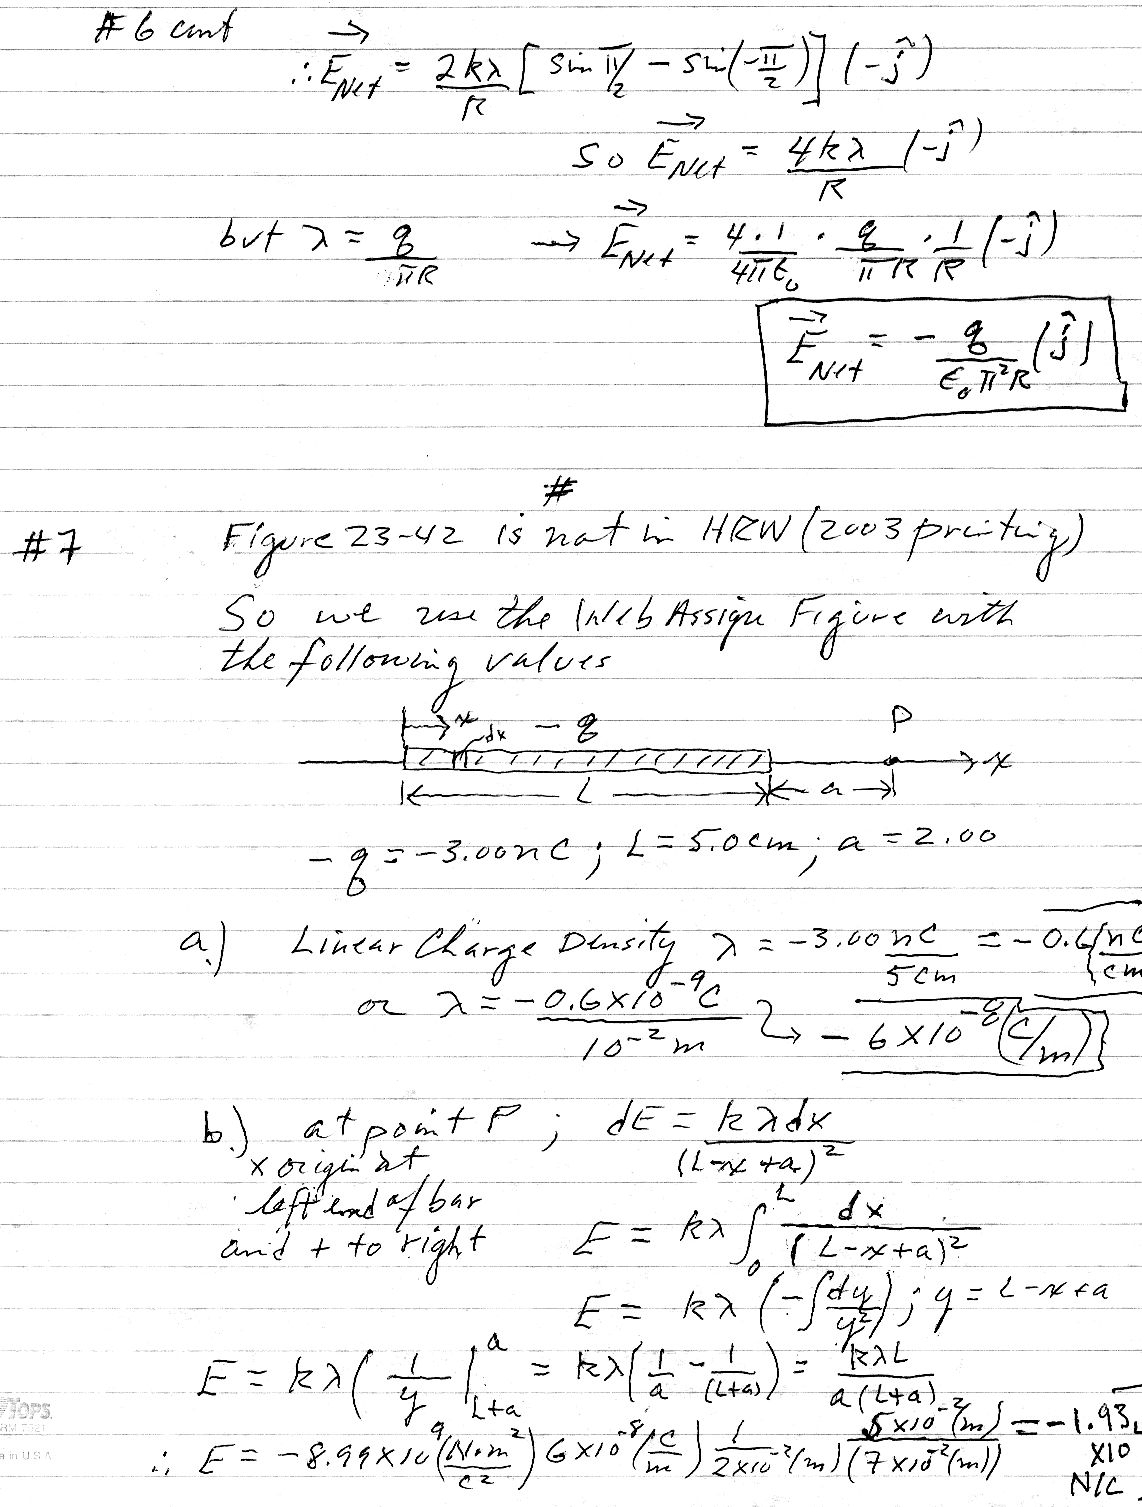 #6 cont
∴ E⃗Net = 2kλ/R [sin π/2 − sin(−π/2)] (−ĵ)
So E⃗Net = 4kλ/R (−ĵ)
but λ = q/πR → E⃗Net = 4·1/4πε₀ · q/πR · 1/R (−ĵ)
E⃗Net = − q/ε₀π²R (ĵ)
#
#7 Figure 23-42 is not in HRW (2003 printing)
So we use the WebAssign Figure with
the following values
x dx −q P
x
L a
−q = −3.00nC; L = 5.0cm; a = 2.00
a.) Linear Charge Density λ = −3.00nC/5cm = −0.6 (nC/cm
or λ = −0.6×10⁻⁹C/10⁻²m → −6×10⁻⁸ (C/m)
b.) at point P; dE = kλdx/(L−x+a)²
x origin at
left end of bar
and + to right
E = kλ ∫₀ᴸ dx/(L−x+a)²
E = kλ (−∫dy/y²); y = L−x+a
E = kλ( 1/y |ᵃ L+a = kλ(1/a − 1/(L+a)) = kλL/a(L+a)
∴ E = −8.99×10⁹ (N·m²/C²) 6×10⁻⁸ (C/m) 1/2×10⁻²(m) 5×10⁻²(m)/(7×10⁻²(m)) = −1.93
×10
N/C
TOPS
in U S A